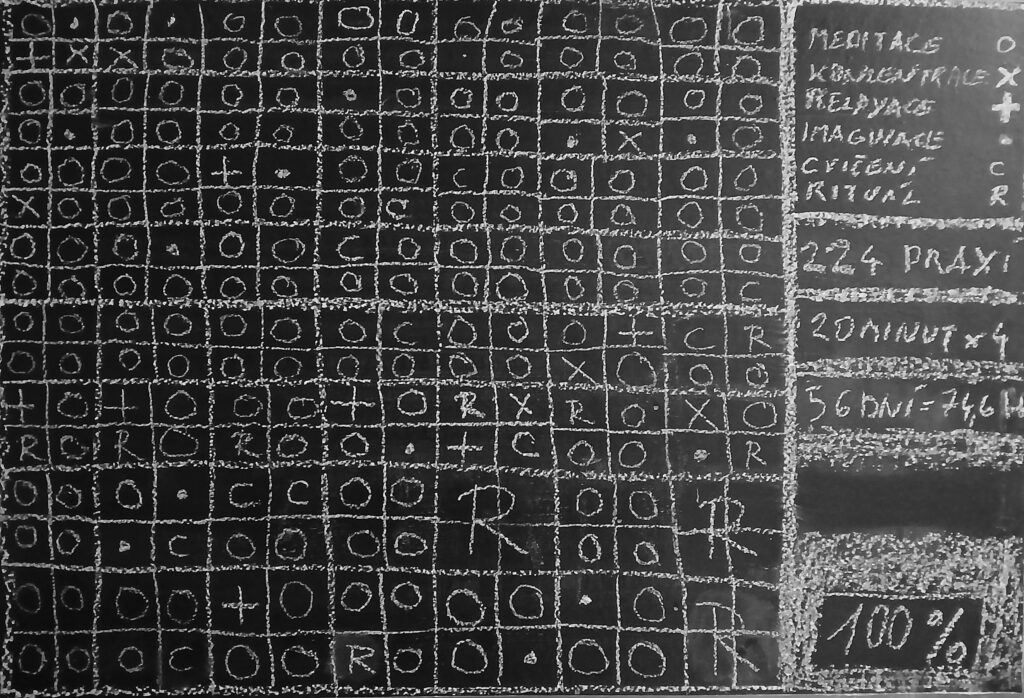 O • O • O O O O O • O O O O
+ X X O O O O O • O O O O O
O O O O O O • O O O O O O O
O • O O O O O O O O • X • O
O O O O + • O O C O O O O O
X O O O O O O C O O O O O O
O O O • O O C O O O O O O O
O O O O O O O O O O O O O C
O O O O O O O C O O O + C R
O O O O O O O O O O X O O O
+ O + O O O + O R X R O X O
R C R O R O O • + C O O • R
O O O • C C O O R O O R
O O • C O O O O O O
O O O O + O O O O O • O R
O O O C O O R O O • O O
MEDITACE O
KONCENTRACE X
RELAXACE +
IMAGINACE •
CVIČENÍ C
RITUÁL R
224 PRAXÍ
20 MINUT x 4
56 DNÍ = 74,6 H
100 %